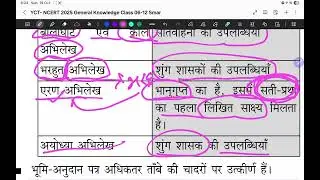 YCT- NCERT 2025 General Knowledge Class 06-12 Smar
बालाघाट एवं कार्ले सातवाहनों की उपलब्धियाँ
अभिलेख
भरहुत अभिलेख शुंग शासकों की उपलब्धियाँ
एरण अभिलेख भानुगुप्त का है, इसमें सती-प्रथा
का पहला लिखित साक्ष्य मिलता
है।
अयोध्या अभिलेख शुंग शासक की उपलब्धियाँ
भूमि-अनुदान पत्र अधिकतर ताँबे की चादरों पर उत्कीर्ण हैं।